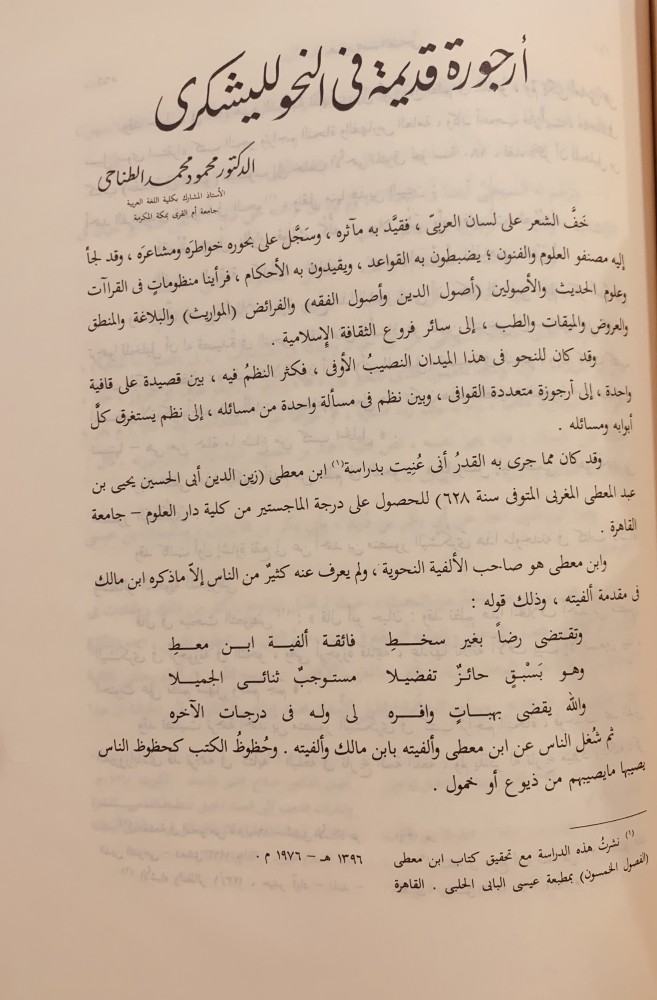 أرجوزة قديمة فى النحو لليشكرى
الدكتور محمود محمد الطناحى
الأستاذ المشارك بكلية اللغة العربية
جامعة أم القرى بمكة المكرمة
خَفَّ الشعر على لسان العربىّ ، فقيَّد به مآثره ، وسَجَّل على بحوره خواطرَه ومشاعرَه ، وقد لجأ
إليه مصنفو العلوم والفنون ؛ يضبطون به القواعد ، ويقيدون به الأحكام ، فرأينا منظوماتٍ فى القراآت
وعلوم الحديث والأصولين (أصول الدين وأصول الفقه) والفرائض (المواريث) والبلاغة والمنطق
والعروض والميقات والطب ، إلى سائر فروع الثقافة الإسلامية .
وقد كان للنحو فى هذا الميدان النصيبُ الأوفى ، فكثر النظمُ فيه ، بين قصيدة على قافية
واحدة ، إلى أرجوزة متعددة القوافى ، وبين نظم فى مسألة واحدة من مسائله ، إلى نظم يستغرق كلَّ
أبوابه ومسائله .
وقد كان مما جرى به القدرُ أنى عُنِيت بدراسة(١) ابن معطى (زين الدين أبى الحسين يحيى بن
عبد المعطى المغربى المتوفى سنة ٦٢٨) للحصول على درجة الماجستير من كلية دار العلوم – جامعة
القاهرة .
وابن معطى هو صاحب الألفية النحوية ، ولم يعرف عنه كثيرٌ من الناس إلاّ ماذكره ابن مالك
فى مقدمة ألفيته ، وذلك قوله :
وتقتضى رضاً بغير سخطِ فائقة ألفية ابن معطِ
وهو بَسْبقٍ حائزٌ تفضيلا مستوجبٌ ثنائى الجميلا
والله يقضى بهباتٍ وافره لى وله فى درجات الآخره
ثم شُغل الناس عن ابن معطى وألفيته بابن مالك وألفيته . وحُظوظُ الكتب كحظوظ الناس
يصيبها مايصيبهم من ذيوع أو خمول .
(١) نشرتُ هذه الدراسة مع تحقيق كتاب ابن معطى
(الفصول الخمسون) بمطبعة عيسى البابى الحلبى . القاهرة
١٣٩٦ هـ – ١٩٧٦ م .